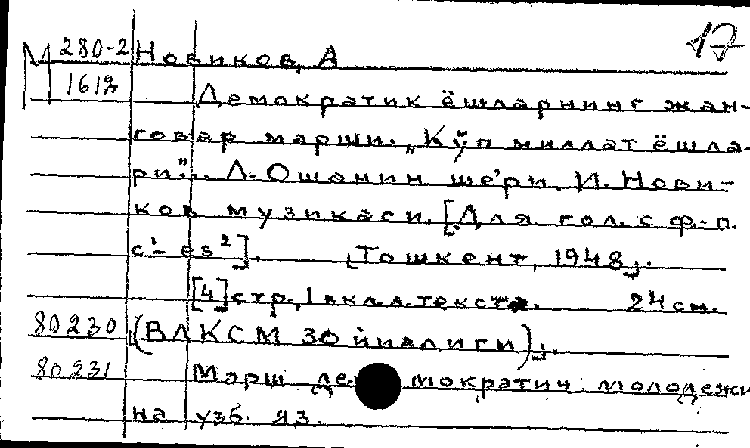 17
М 280-2 Новиков, А
1618
Демократик ёшларнинг жан-
говар марши. „Кўп миллат ёшла-
ри"... Л. Ошанин ше'ри. И. Нови-
ков музикаси. [Для гол. с ф.-п.
c¹- es²]. [Тошкент, 1948].
[4] стр., 1 вкл. текст. 24 см.
80230 (ВЛКСМ 30 йиллиги).
80231 Марш демократич. молодежи
на узб. яз.